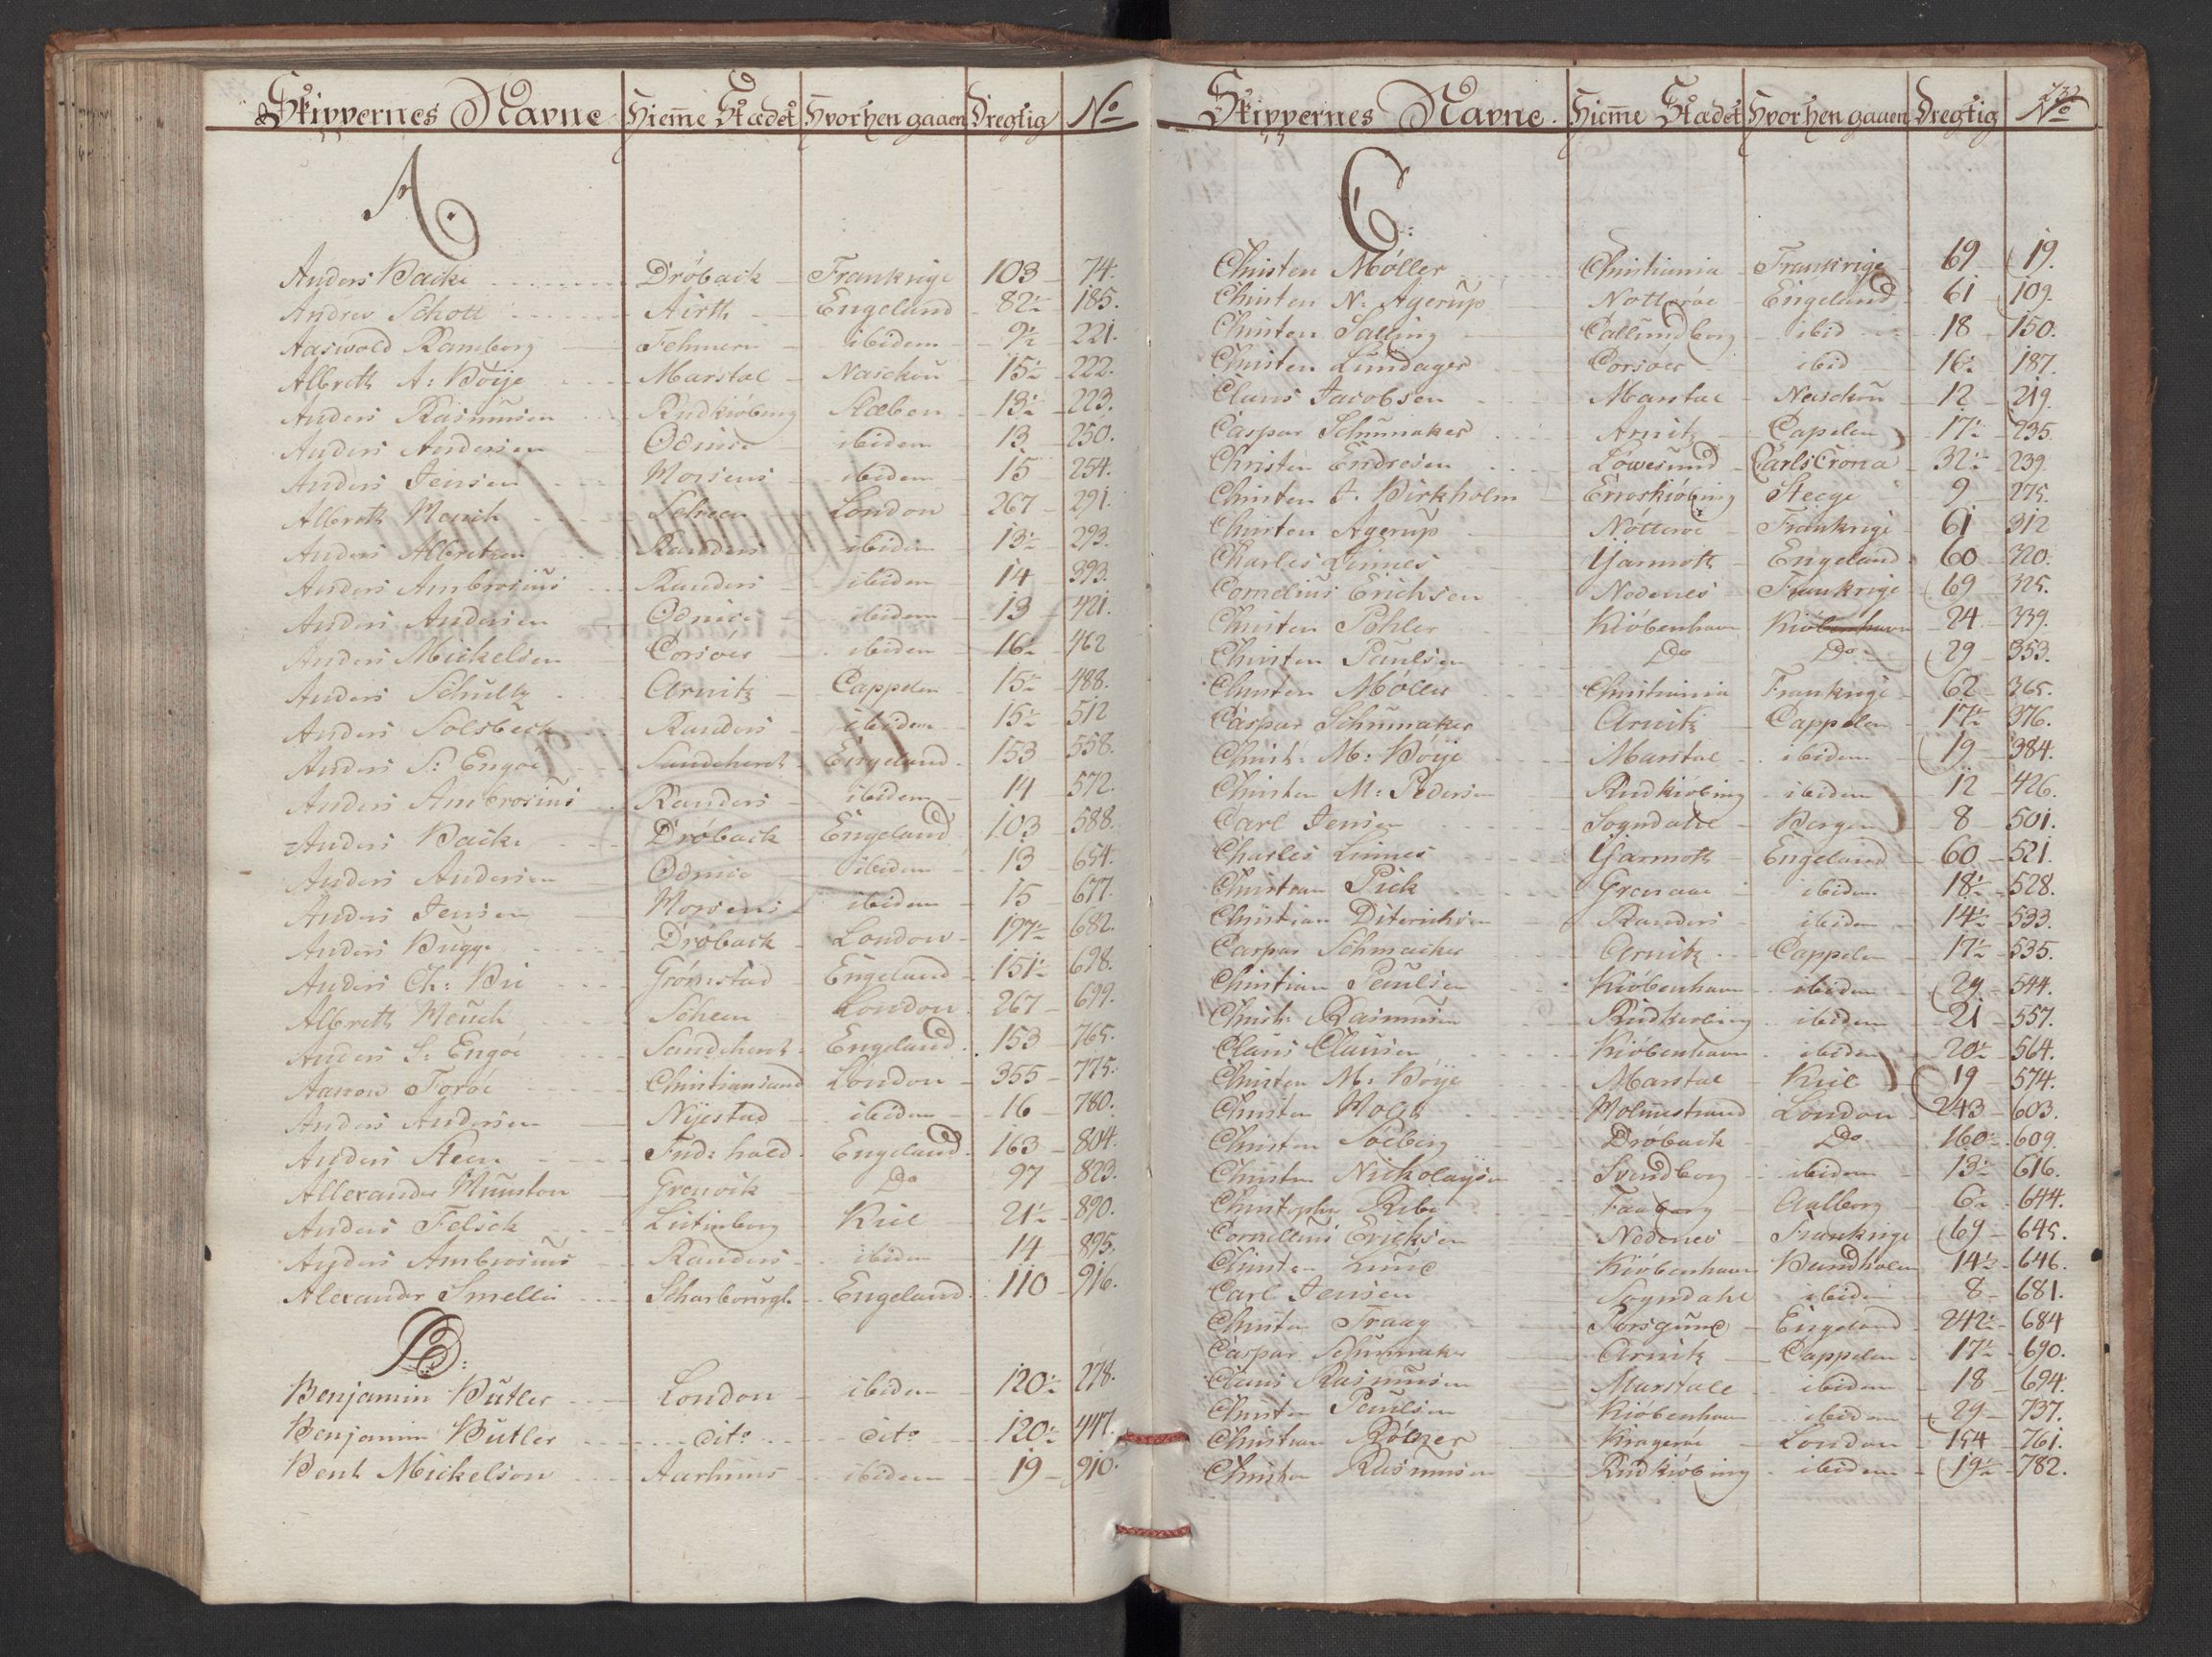 Skippernes Navne Hieme Stædet Hvorhen gaaen Dregtig No
A.
Anders Backe Dröback Frankrige 103 74.
Andrev Schott Airth Engeland 82½ 185.
Aaswold Ramborg Fehmern ibidem 9½ 221.
Albreth A: Böije Marstal Naschou 15½ 222.
Anders Rasmusen Rudkiöbing Stæben 13½ 223.
Anders Andersen Odense ibidem 13 250.
Anders Jensen Horsens ibidem 15 254.
Albreth Mench Scheen London 267 291.
Anders Albretzen Randers ibidem 13½ 293.
Anders Ambrosius Randers ibidem 14 393.
Anders Andersen Odense ibidem 13 421.
Anders Mickelsen Corsöer ibidem 16 462
Anders Schultz Arnitz Cappelen 15½ 488.
Anders Solsbeck Randers ibidem 15½ 512
Anders S: Engöe Sandeherch Engeland 153 558.
Anders Ambrosius Randers ibidem 14 572.
Anders Backe Dröback Engeland 103 588.
Anders Andersen Odense ibidem 13 654.
Anders Jensen Horsens ibidem 15 677.
Anders Bugge Dröback London 197½ 682.
Anders Ch: Bie Grömstad Engeland 151½ 698.
Albreth Mench Scheen London 267 699.
Anders S: Engöe Sandeherch Engeland 153 765.
Aanon Toröe Christiansand London 355 775.
Anders Andersen Nijestad ibidem 16 780.
Anders Steen Frid: hald Engeland 163 804.
Allexander Munston Grenvik Do 97 823.
Anders Felsch Lütinborg Kiel 21½ 890.
Anders Ambrosius Randers ibidem 14 895.
Alexander Smellie Scharbourgh Engeland 110 916.
B:
Benjamin Butler London ibidem 120½ 278.
Benjamin Butler dito dito 120½ 447.
Bent Mickelsen Aarhuus ibidem 19 910.
Skippernes Navne. Hieme Stædet Hvorhen gaaen Dregtig No
C:
Christen Möller Christiania Frankrige 69 19.
Christen N: Agerup Nötteröe Engeland 61 109.
Christen Salling Callundborg ibid 18 150.
Christen Lundager Corsöer ibid 16½ 187.
Claus Jacobsen Marstal Naschou 12 219.
Caspar Schumaker Arnitz Capelen 17½ 235.
Christen Endresen Löwesund Carls Crona 32½ 239.
Christen J. Birkholm Erroskiöbing Steege 9 275.
Christen Agerup Nötteröe Frankrige 61 312
Charles Linnes Yarmoth Engeland 60 320.
Cornelius Erichsen Nedenes Frankrige 69 325.
Christen Pohler Kiöbenhavn Kiöbenhavn 24 339.
Christen Paulsen Do Do 29 353.
Christen Möller Christiania Frankrige 62 365.
Caspar Schumaker Arnitz Cappelen 17½ 376.
Christ: M: Böije Marstal ibidem 19 384.
Christen M: Pedersen Rudkiöbing ibidem 12 426.
Carl Jensen Sogndahl Bergen 8 501.
Charles Linnes Yarmoth Engeland 60 521.
Christian Pick Grenaae ibidem 18½ 528.
Christian Diterichsen Randers ibidem 14½ 533.
Caspar Schmacker Arnitz Cappelen 17½ 535.
Christian Paulsen Kiöbenhavn ibidem 29 544.
Christ: Rasmusen Rudkiöbing ibidem 21 557.
Claus Clausen Kiöbenhavn ibidem 20½ 564.
Christen M: Böije Marstal Kiel 19 574.
Christen Mogh Holmestrand London 243 603.
Christen Söeberg Dröback Do 160½ 609.
Christen Nickolaysen Svendborg ibidem 13½ 616.
Christopher Ribe Faaborg Aalborg 6½ 644.
Cornellius Ericksen Nedenes Frankrige 69 645.
Christen Lund Kiöbenhavn Bandholm 14½ 646.
Carl Jensen Sogndahl ibidem 8 681.
Christen Traag Porsgrund Engeland 242½ 684
Caspar Schumaker Arnitz Cappelen 17½ 690.
Claus Rasmusen Marstall ibidem 18 694.
Christen Paulsen Kiöbenhavn ibidem 29 737.
Christian Kragerøe London 154 761.
Christen Rasmusen Rudkiöbing ibidem 19½ 782.